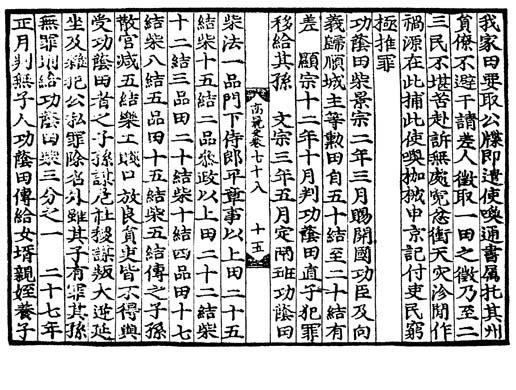 我家田要取公牒即遣使喚通書屬托其州
員僚不避干請差人徵取一田之徵乃至二
三民不堪苦赴訴無處寃忿銜天灾沴閒作
禍源在此捕此使喚枷械申京記付吏民窮
極推罪
功蔭田柴景宗二年三月賜開國功臣及向
義歸順城主等勳田自五十結至二十結有
差　顯宗十二年十月判功蔭田直子犯罪
移給其孫　文宗三年五月定兩班功蔭田
高麗史卷七十八　十五
柴法一品門下侍郎平章事以上田二十五
結柴十五結二品叅政以上田二十二結柴
十二結三品田二十結柴十結四品田十七
結柴八結五品田十五結柴五結傳之子孫
散官减五結樂工賤口放良員吏皆不得與
受功蔭田者之子孫謀危社稷謀叛大逆延
坐及雜犯公私罪除名外雖其子有罪其孫
無罪則給功蔭田柴三分之一　二十七年
正月判無子人功蔭田傳給女壻親姪養子